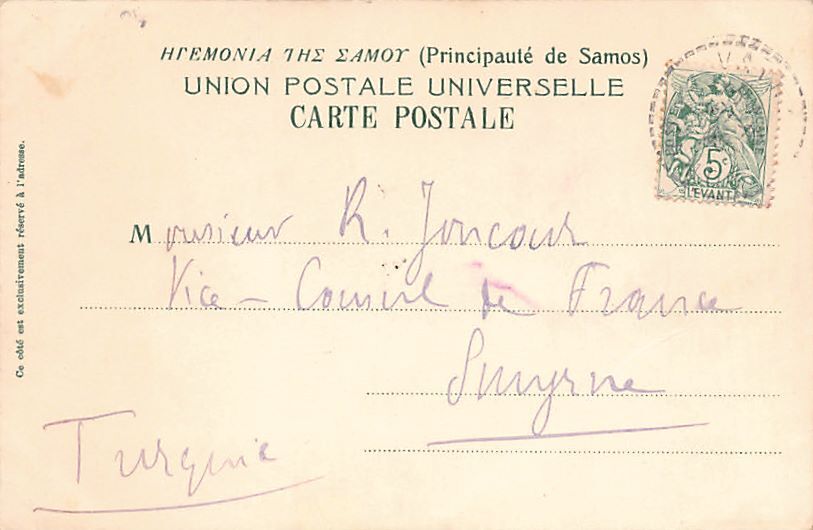 ΗΓΕΜΟΝΙΑ ΤΗΣ ΣΑΜΟΥ (Principauté de Samos)
UNION POSTALE UNIVERSELLE
CARTE POSTALE
5c
LEVANT
Monsieur R. Joncour
Vice-Consul de France
Smyrne
Turquie
Ce côté est exclusivement réservé à l'adresse.